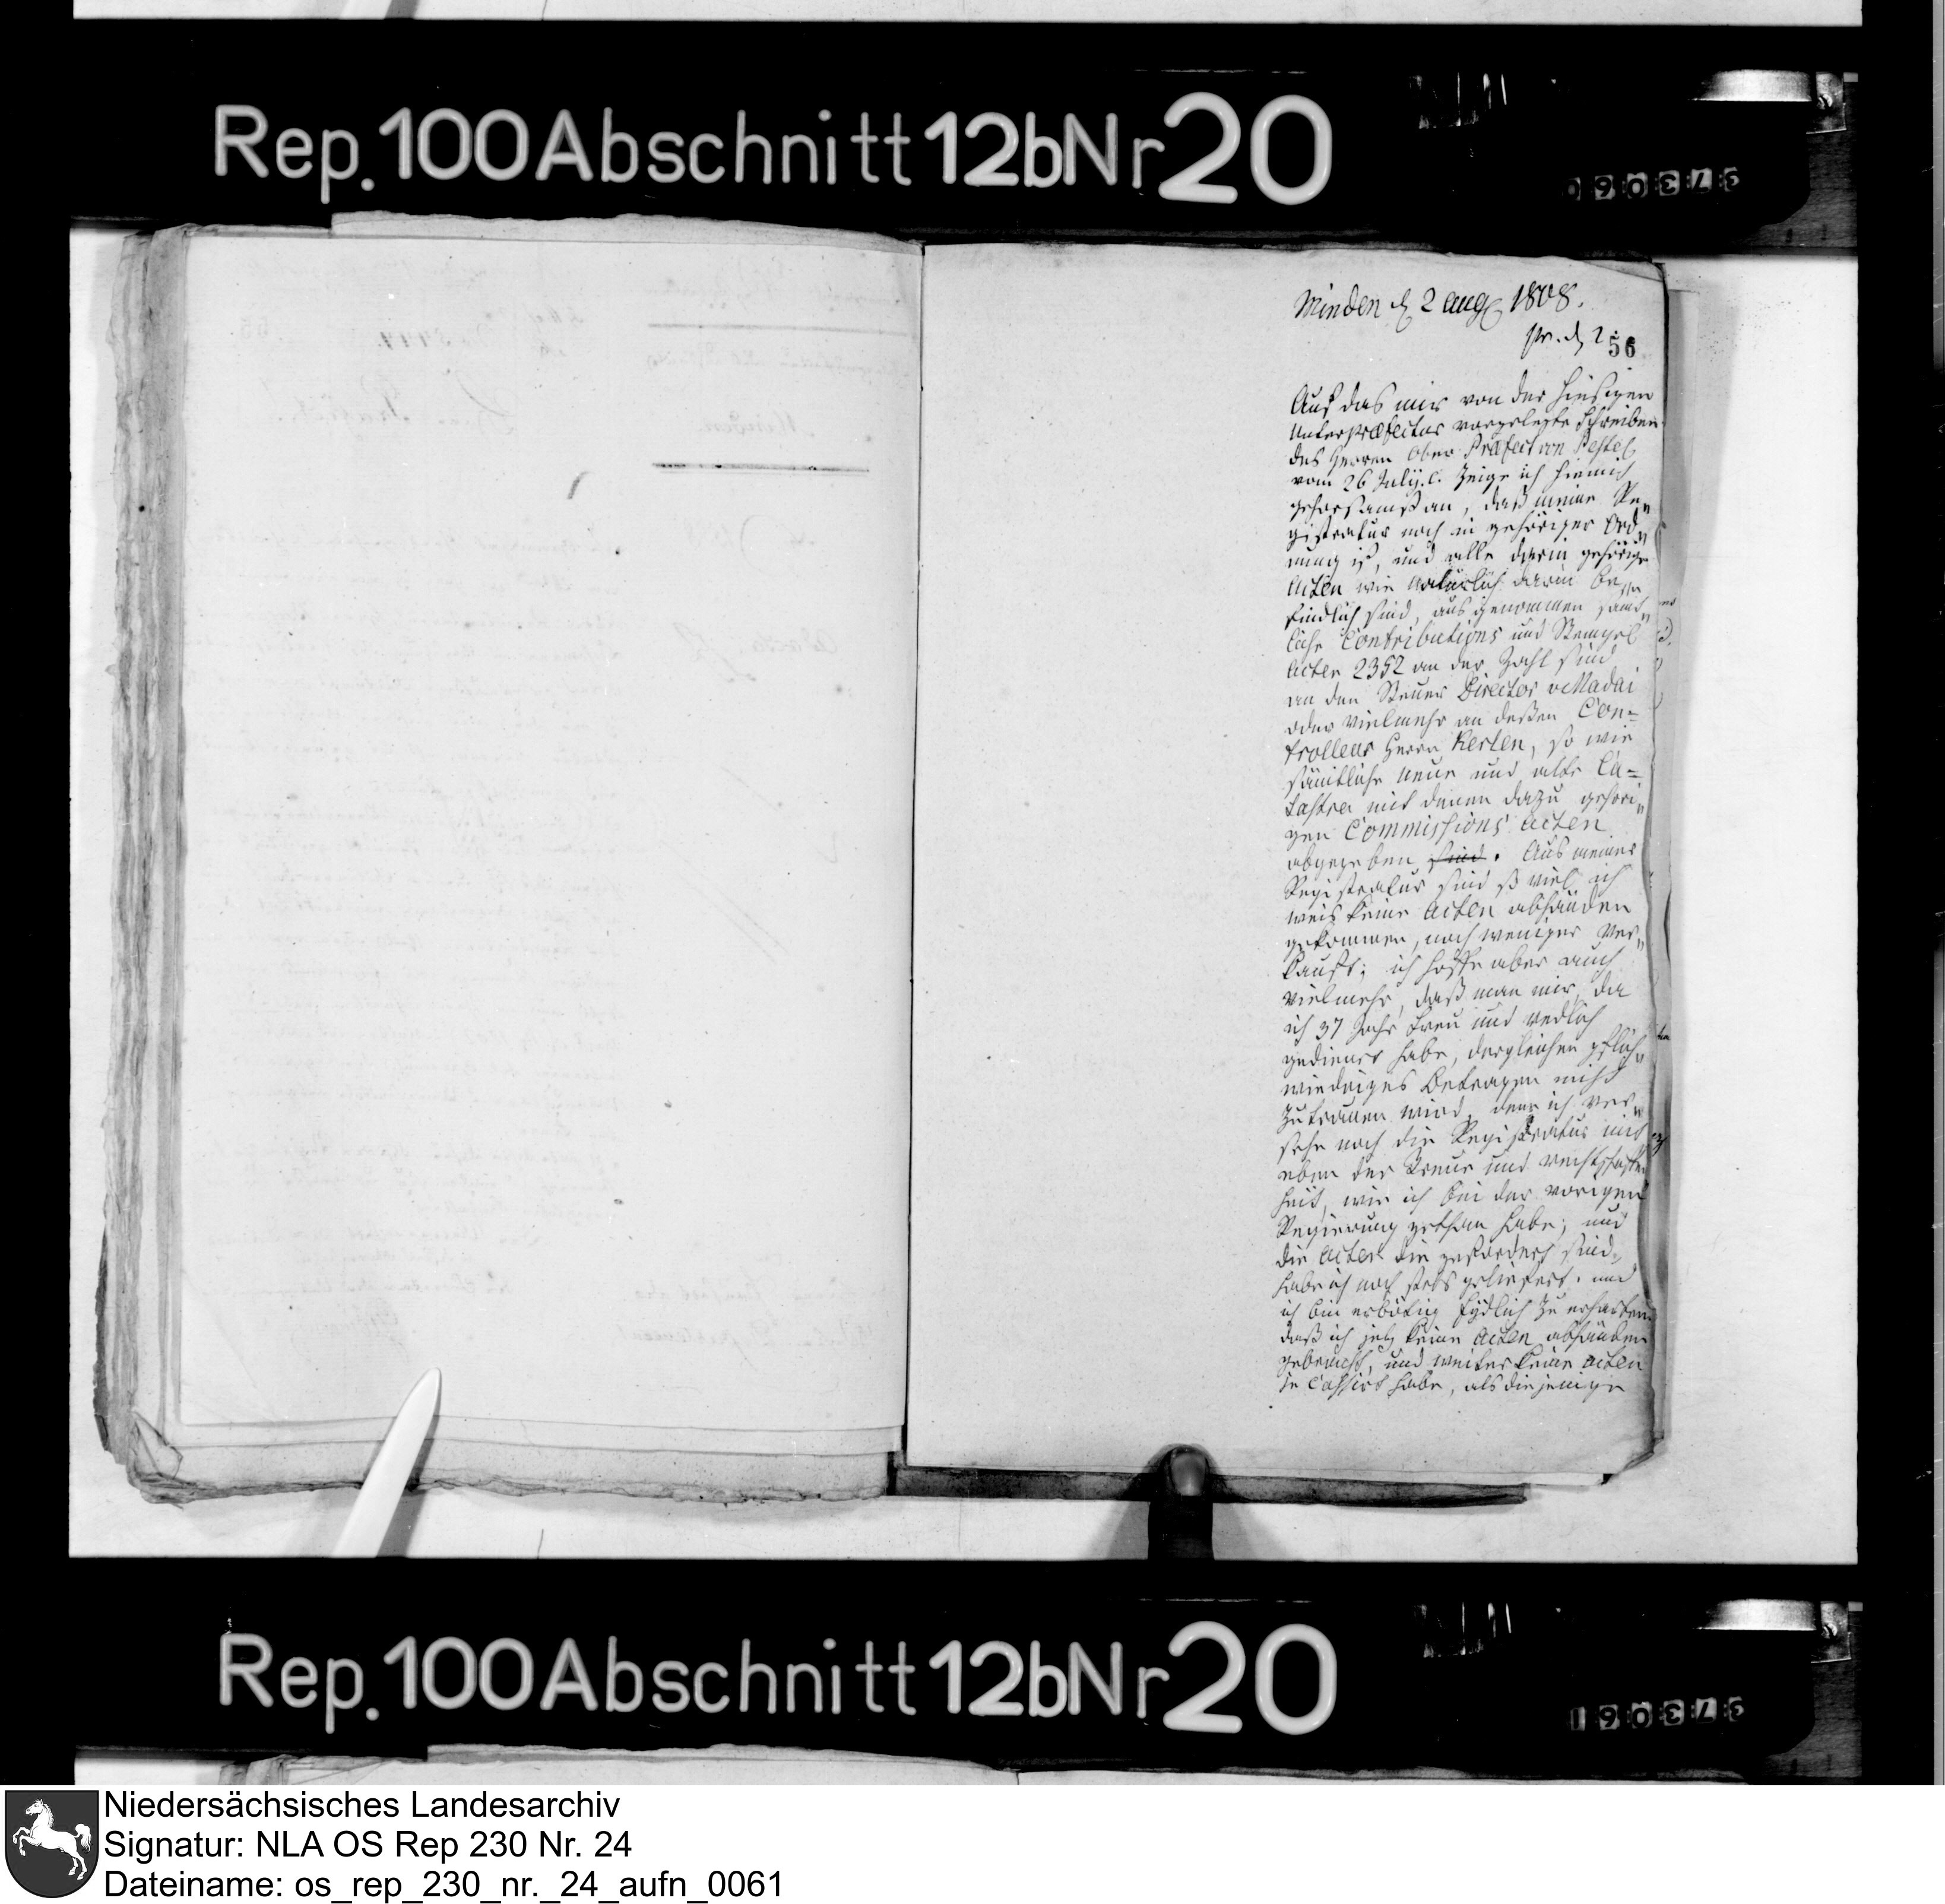 Rep. 100 Abschnitt 12b Nr 20
Minden d 2 aug 1808.
pr. d 2
56
Auf das mir von der hiesigen
Unterpræfectur vorgelegte Schreiben
des Herren Ober Præfect von Pestel
vom 26 July. c. zeige ich hiemit
gehorsamst an, daß meine Re„
gistratur noch in gehöriger Ord„
nung ist, und alle darin gehörige
Acten wie natürlich darin be„
findlich sind, ausgenommen sämt„
liche Contributions und Stempel
Acten 2352 an der Zahl sind
an den Steuer Director v Madai
oder vielmehr an deßen Con=
trolleur Herrn Kerlen, so wie
sämtliche neue und alte Ca=
tastra mit denen dazu gehöri„
gen Commissions acten
abgegeben sind. Aus meiner
Registratur sind so viel ich
weis keine Acten abhänden
gekommen, noch weniger ver„
kauft; ich hoffe aber auch
vielmehr, daß man mir, da
ich 37 Jahr treu und redlich
gedienet habe, dergleichen pflicht
wiedriges Betragen nicht
zutrauen wird, denn ich ver„
sehe noch die Registratur mit
eben der Treue und rechtschaffen
heit, wie ich bei der vorigen
Regierung gethan habe; und
die Acten die gefordert sind,
habe ich noch stets geliefert. und
ich bin erbötig eydlich zu erhärten
daß ich jetz keine Acten abhänden
gebracht, und weiter keine acten
je cassirt habe, als diejenige
Rep. 100 Abschnitt 12b Nr 20
Niedersächsisches Landesarchiv
Signatur: NLA OS Rep 230 Nr. 24
Dateiname: os_rep_230_nr._24_aufn_0061